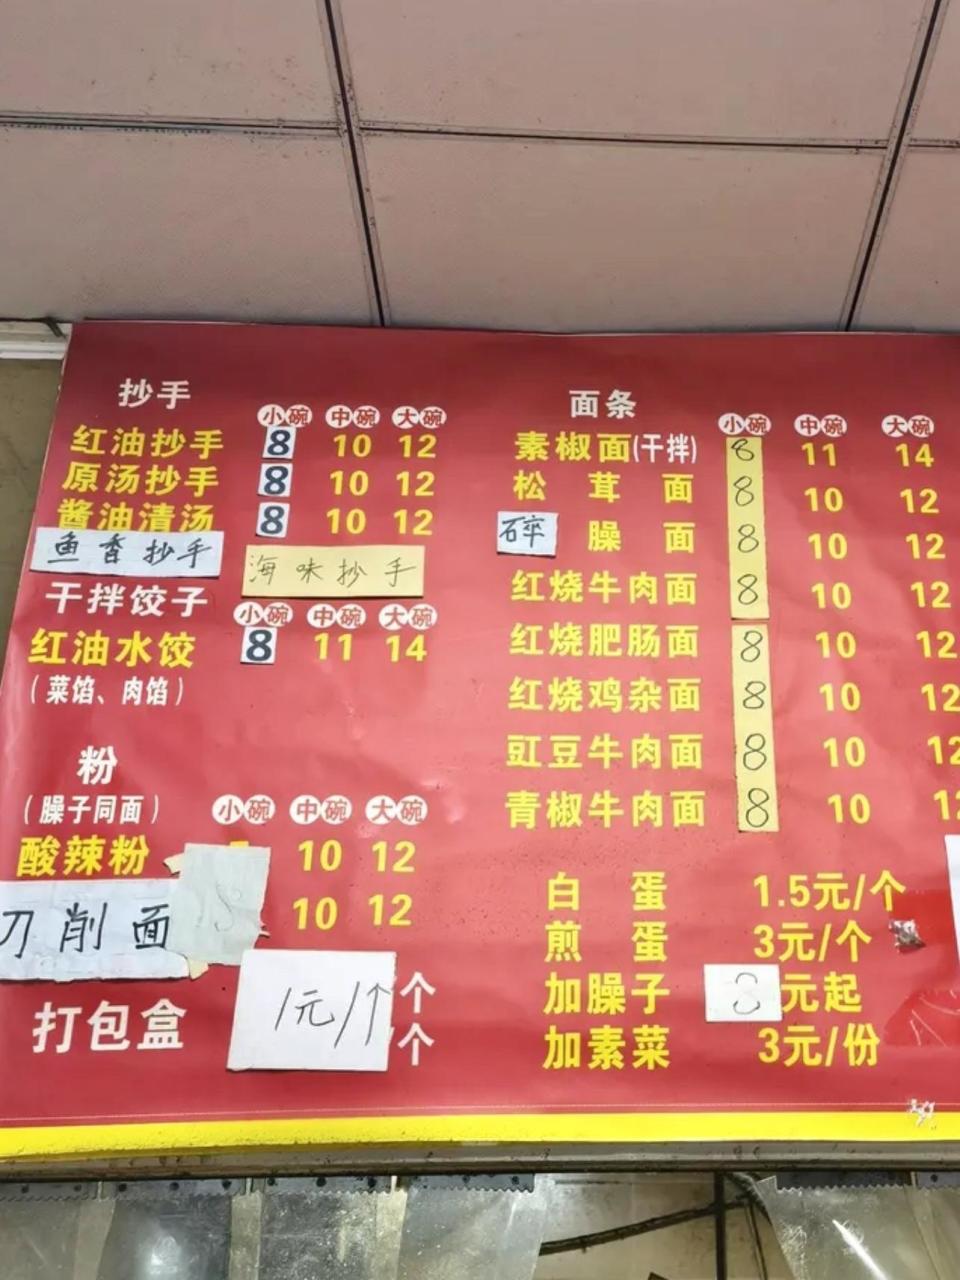 抄手
小碗 中碗 大碗
红油抄手 8 10 12
原汤抄手 8 10 12
酱油清汤 8 10 12
鱼香抄手 海味抄手
干拌饺子 小碗 中碗 大碗
红油水饺 8 11 14
(菜馅、肉馅)
粉
(臊子同面) 小碗 中碗 大碗
酸辣粉 10 12
刀削面 8 10 12
打包盒 1元/个 个
个
面条
小碗 中碗 大碗
素椒面(干拌) 8 11 14
松茸面 8 10 12
碎臊面 8 10 12
红烧牛肉面 8 10 12
红烧肥肠面 8 10 12
红烧鸡杂面 8 10 12
豇豆牛肉面 8 10 12
青椒牛肉面 8 10 12
白蛋 1.5元/个
煎蛋 3元/个
加臊子 8元起
加素菜 3元/份